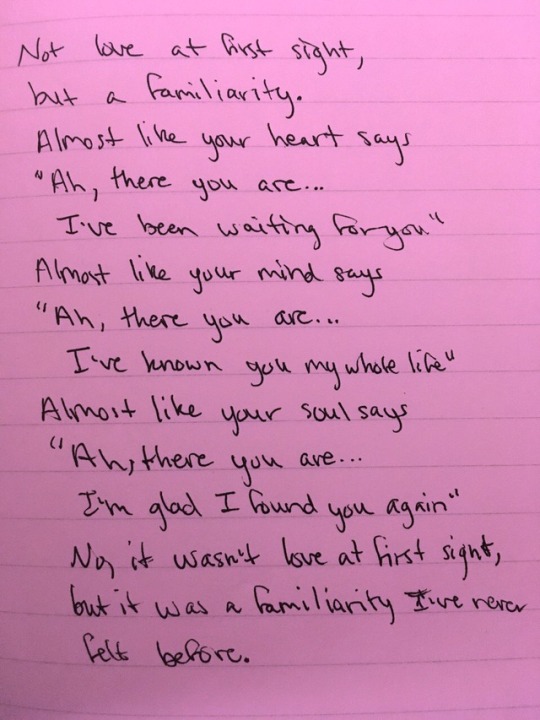 Not love at first sight,
but a familiarity.
Almost like your heart says
"Ah, there you are...
I've been waiting for you"
Almost like your mind says
"Ah, there you are...
I've known you my whole life"
Almost like your soul says
"Ah, there you are...
I'm glad I found you again"
No, it wasn't love at first sight,
but it was a familiarity I've never
felt before.